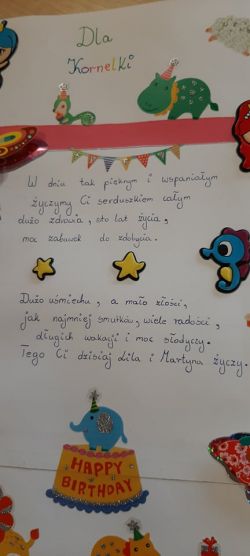 Dla
Kornelki
W dniu tak pięknym i wspaniałym
życzymy Ci serduszkiem całym
dużo zdrowia, sto lat życia,
moc zabawek do zdobycia.
Dużo uśmiechu, a mało złości,
jak najmniej smutków, wiele radości,
długich wakacji i moc słodyczy.
Tego Ci dzisiaj Lila i Martyna życzy.
HAPPY
BIRTHDAY